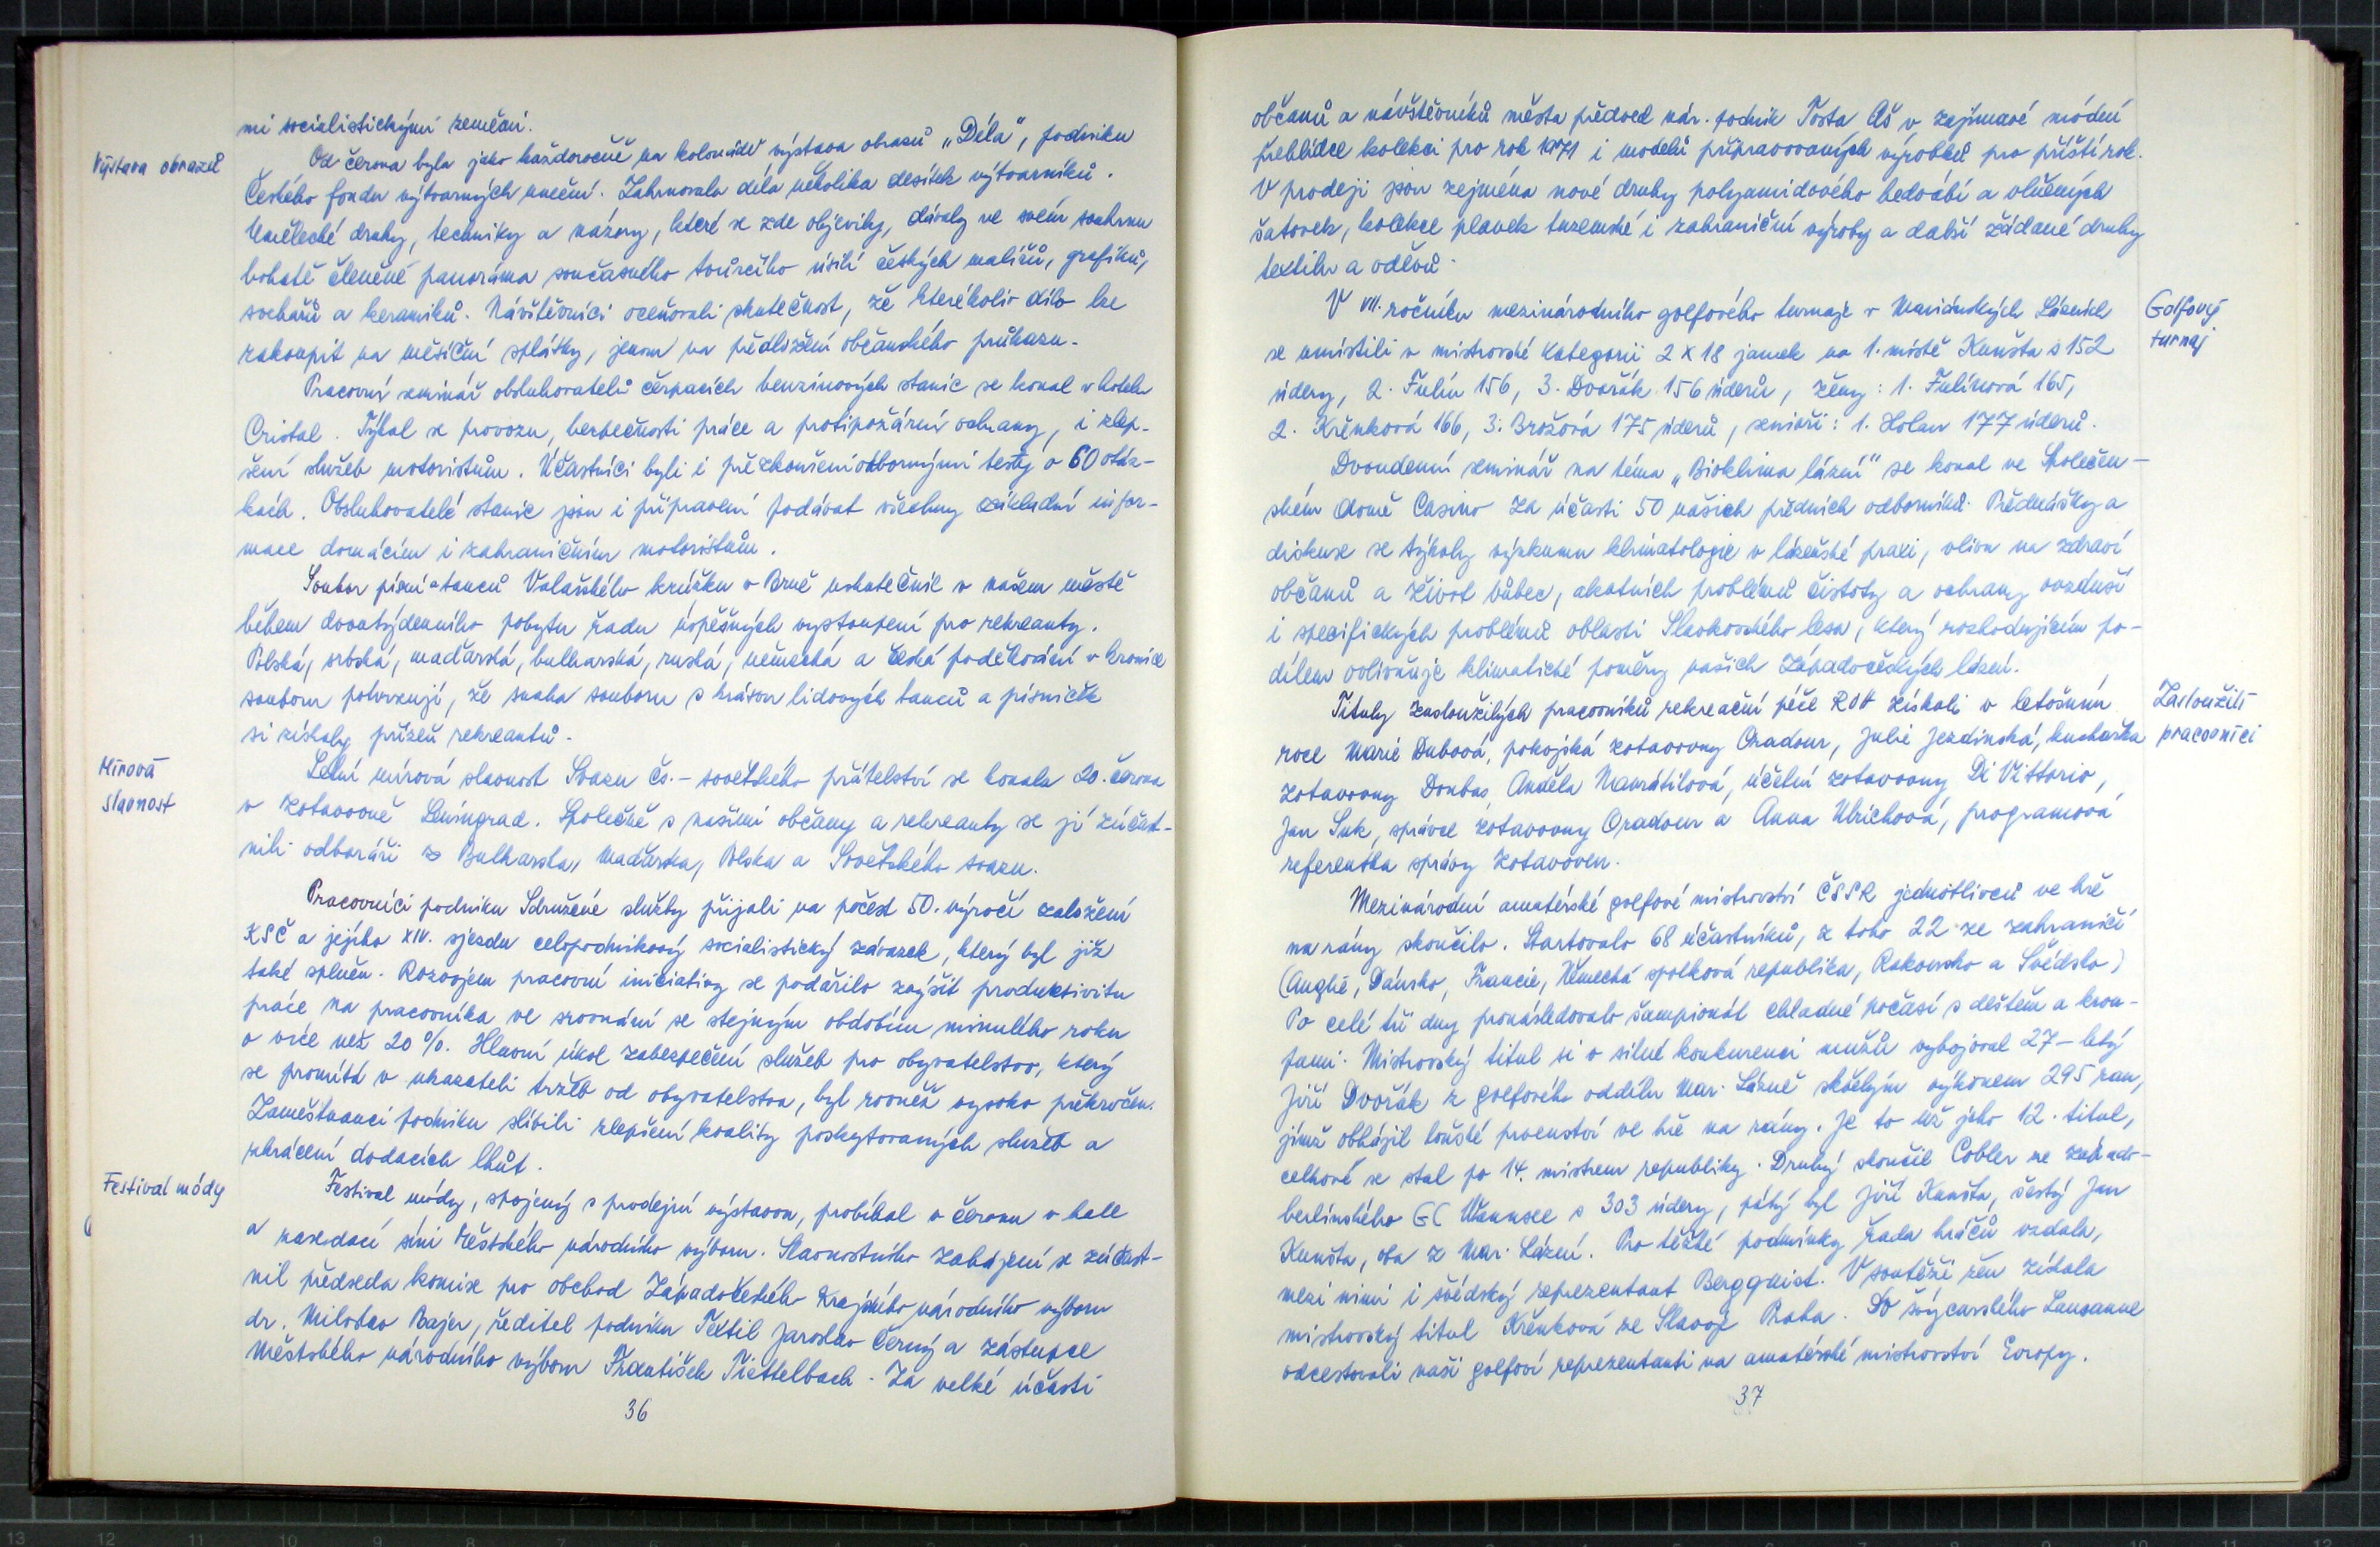 mi socialistickými zeměmi.
Výstava obrazů
Od června byla jako každoročně na kolonádě výstava obrazů „Díla", podniku
Českého fondu výtvarných umění. Zahrnovala díla několika desítek výtvarníků.
Umělecké druhy, techniky a názory, které se zde objevily, dávaly ve svém souhrnu
bohatě členěné panoráma současného tvůrčího úsilí českých malířů, grafiků,
sochařů a keramiků. Návštěvníci oceňovali skutečnost, že kterékoliv dílo lze
zakoupit na měsíční splátky, jenom na předložení občanského průkazu.
Pracovní seminář obsluhovatelů čerpacích benzinových stanic se konal v hotelu
Cristal. Týkal se provozu, bezpečnosti práce a protipožární ochrany, i zlep-
šení služeb motoristům. Účastníci byli i přezkoušeni odbornými testy o 60 otáz-
kách. Obsluhovatelé stanic jsou i připraveni podávat všechny základní infor-
mace domácím i zahraničním motoristům.
Soubor písní a tanců Valašského krúžku v Brně uskutečnil v našem městě
během dvoutýdenního pobytu řadu úspěšných vystoupení pro rekreanty.
Polská, srbská, maďarská, bulharská, ruská, německá a česká poděkování v kronice
souboru potvrzují, že snaha souboru s krásou lidových tanců a písniček
si získaly přízeň rekreantů.
Mírová
slavnost
Letní mírová slavnost Svazu čs.-sovětského přátelství se konala 20. června
v zotavovně Leningrad. Společně s našimi občany a rekreanty se jí zúčast-
nili odboráři z Bulharska, Maďarska, Polska a Sovětského svazu.
Pracovníci podniku Sdružené služby přijali na počest 50. výročí založení
KSČ a jejího XIV. sjezdu celopodnikový socialistický závazek, který byl již
také splněn. Rozvojem pracovní iniciativy se podařilo zvýšit produktivitu
práce na pracovníka ve srovnání se stejným obdobím minulého roku
o více než 20 %. Hlavní úkol zabezpečení služeb pro obyvatelstvo, který
se promítá v ukazateli tržeb od obyvatelstva, byl rovněž vysoko překročen.
Zaměstnanci podniku slíbili zlepšení kvality poskytovaných služeb a
zkrácení dodacích lhůt.
Festival módy
Festival módy, spojený s prodejní výstavou, probíhal v červnu v hale
a zasedací síni Městského národního výboru. Slavnostního zahájení se zúčast-
nil předseda komise pro obchod Západočeského Krajského národního výboru
dr. Miloslav Bajer, ředitel podniku Textil Jaroslav Černý a zástupce
Městského národního výboru František Tiettelbach. Za velké účasti
36
občanů a návštěvníků města předved nár. podnik Tosta Aš v zajímavé módní
přehlídce kolekci pro rok 1971 i modelů připravovaných výrobků pro příští rok.
V prodeji jsou zejména nové druhy polyamidového hedvábí a vlněných
šatovek, kolekce plavek tuzemské i zahraniční výroby a další žádané druhy
textilu a oděvů.
Golfový
turnaj
V VII. ročníku mezinárodního golfového turnaje v Mariánských Lázních
se umístili v mistrovské kategorii 2 x 18 jamek na 1. místě Kunšta s 152
údery, 2. Fulín 156, 3. Dvořák 156 úderů, ženy: 1. Fulínová 165,
2. Křenková 166, 3. Brožová 175 úderů, senioři: 1. Holan 177 úderů.
Dvoudenní seminář na téma „Bioklima lázní" se konal ve Společen-
ském domě Casino za účasti 50 našich předních odborníků. Přednášky a
diskuse se týkaly výzkumu klimatologie v lázeňské praxi, vlivu na zdraví
občanů a život vůbec, akutních problémů čistoty a ochrany ovzduší
i specifických problémů oblasti Slavkovského lesa, který rozhodujícím po-
dílem ovlivňuje klimatické poměry našich západočeských lázní.
Zasloužilí
pracovníci
Tituly zasloužilých pracovníků rekreační péče ROH získali v letošním
roce Marie Dubová, pokojská zotavovny Oradour, Julie Jezdinská, kuchařka
zotavovny Donbas, Anděla Navrátilová, účetní zotavovny Di Vittorio,
Jan Suk, správce zotavovny Oradour a Anna Ulrichová, programová
referentka správy zotavoven.
Mezinárodní amatérské golfové mistrovství ČSSR jednotlivců ve hře
na rány skončilo. Startovalo 68 účastníků, z toho 22 ze zahraničí
(Anglie, Dánsko, Francie, Německá spolková republika, Rakousko a Švédsko)
Po celé tři dny pronásledovalo šampionát chladné počasí s deštěm a krou-
pami. Mistrovský titul si v silné konkurenci mužů vybojoval 27-letý
Jiří Dvořák z golfového oddílu Mar. Lázně skvělým výkonem 295 ran,
jímž obhájil loňské prvenství ve hře na rány. Je to už jeho 12. titul,
celkově se stal po 14. mistrem republiky. Druhý skončil Cobler ze západo-
berlínského GC Wannsee s 303 údery, pátý byl Jiří Kunšta, šestý Jan
Kunšta, oba z Mar. Lázní. Pro těžké podmínky řada hráčů vzdala,
mezi nimi i švédský reprezentant Bergquist. V soutěži žen získala
mistrovský titul Křenková ze Slavoje Praha. Do švýcarského Lausanne
odcestovali naši golfoví reprezentanti na amatérské mistrovství Evropy.
37